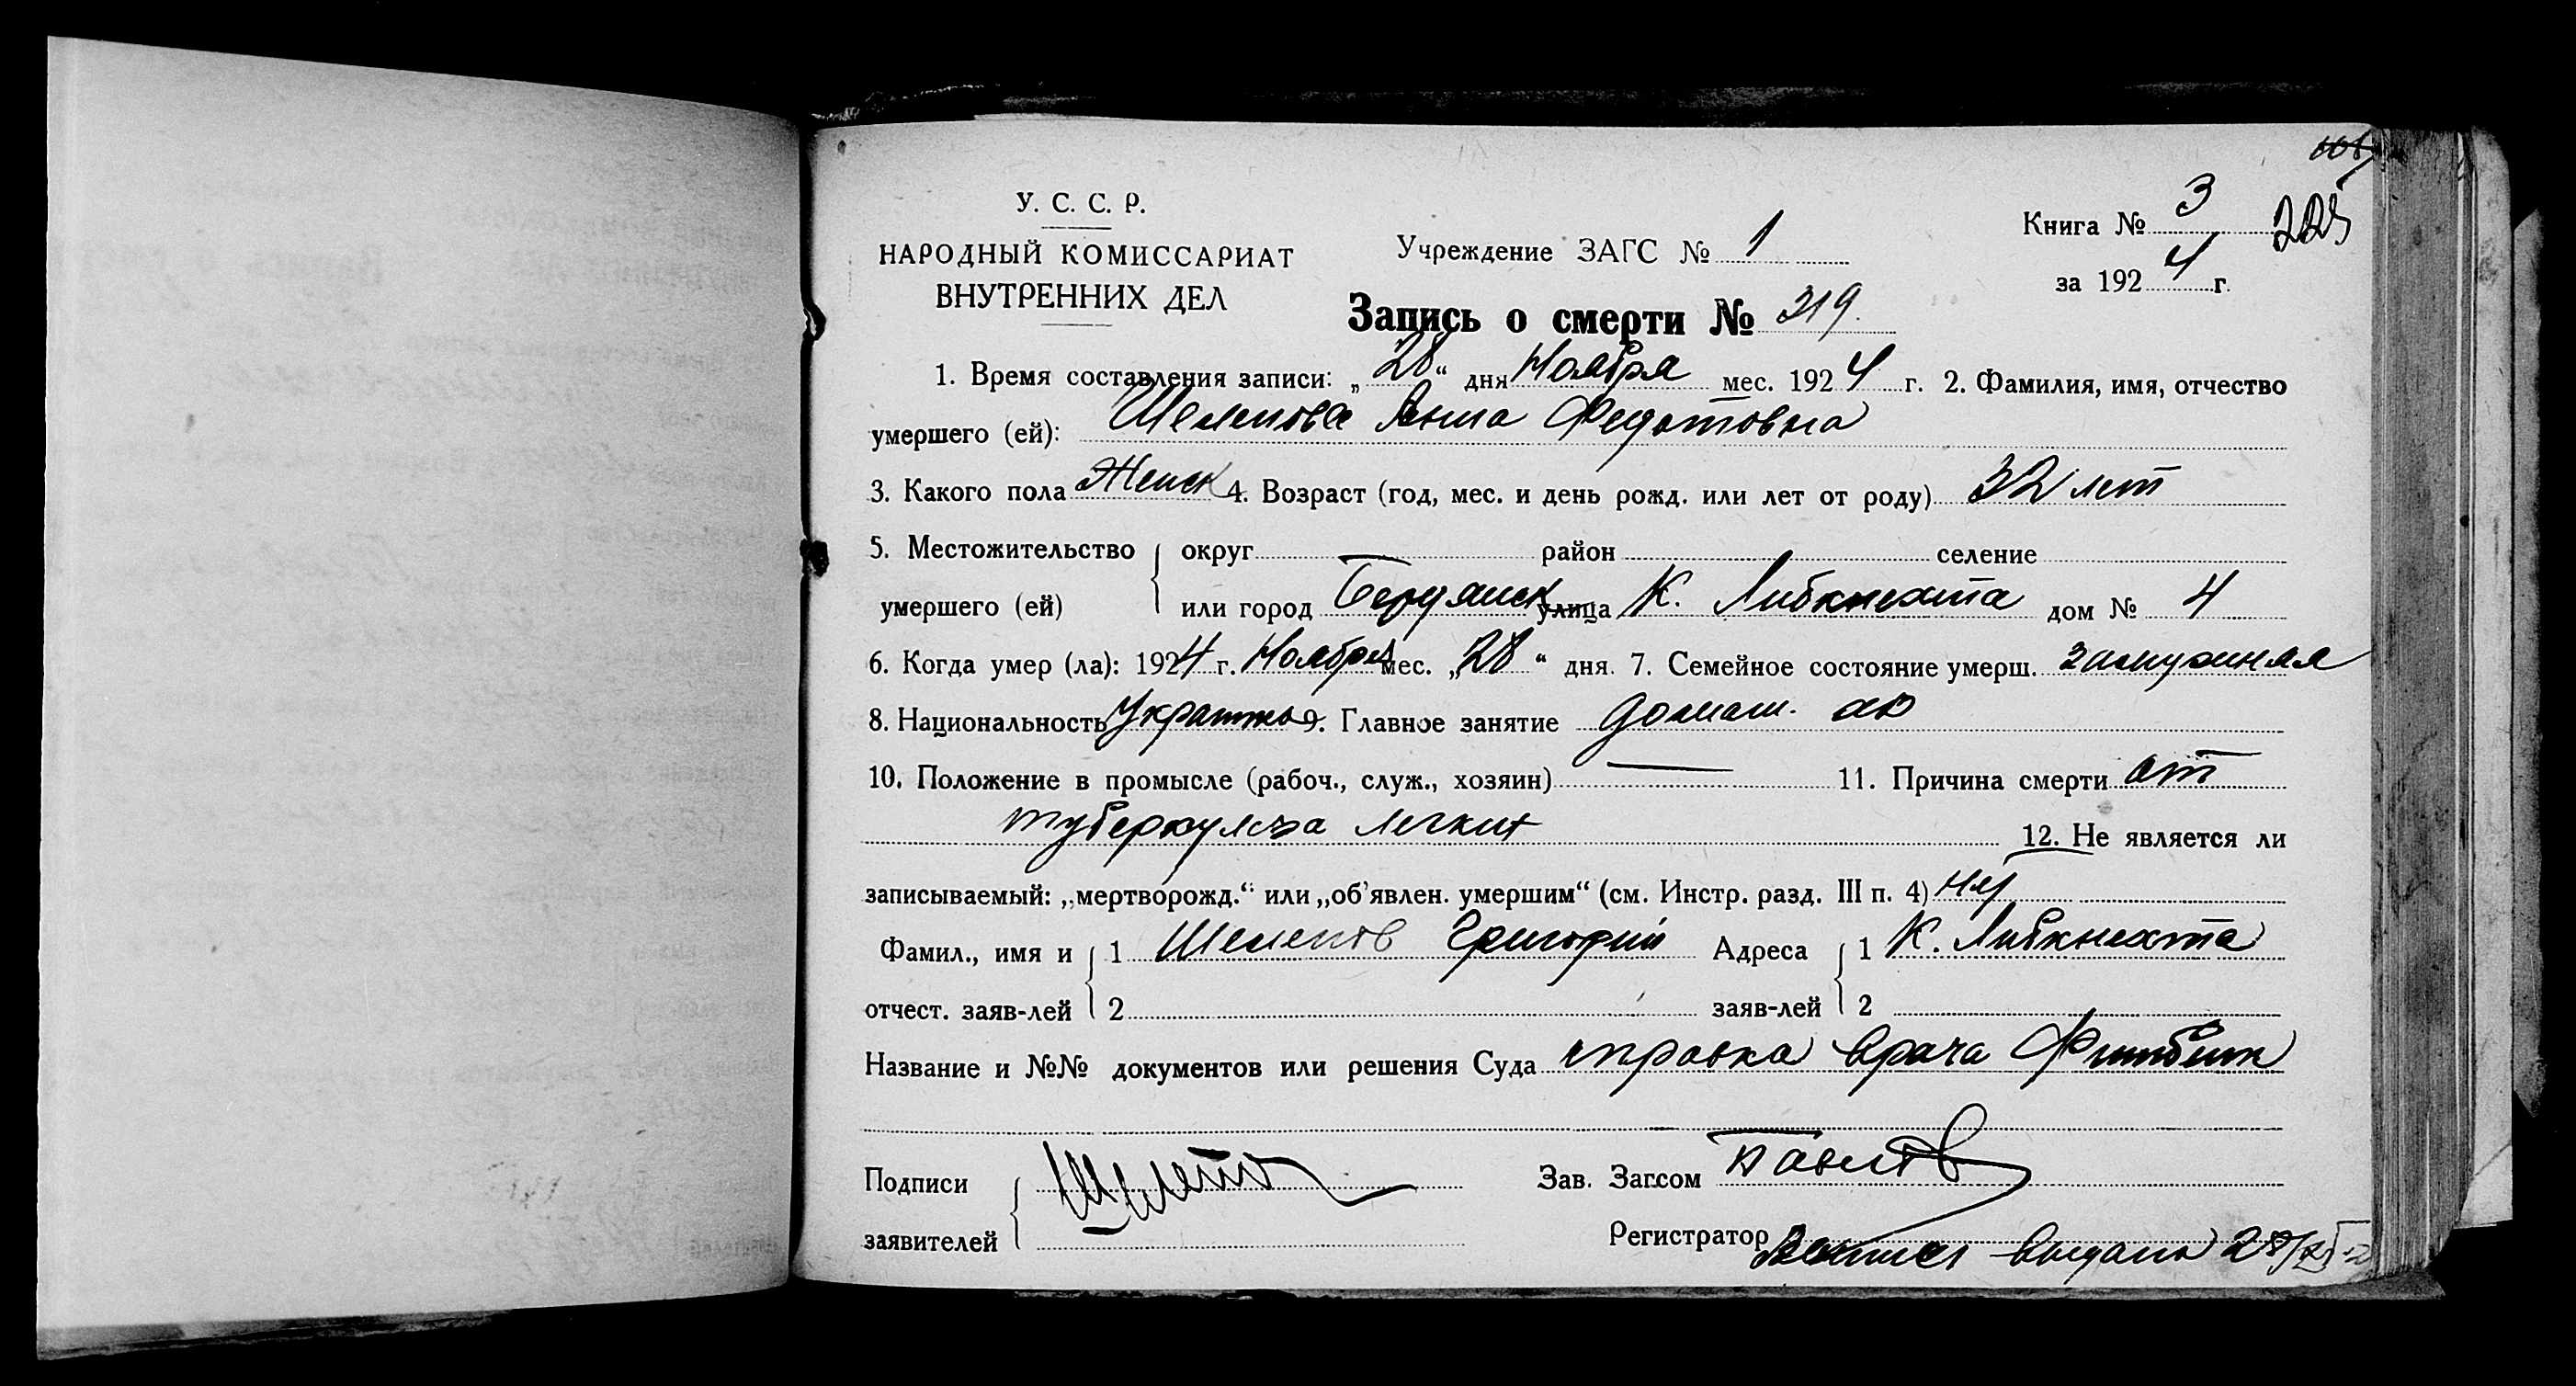 У. С. С. Р.
НАРОДНЫЙ КОМИССАРИАТ
ВНУТРЕННИХ ДЕЛ
Учреждение ЗАГС № 1
Книга № 3 225
за 1924 г.
Запись о смерти № 319.
1. Время составления записи: „28“ дня Ноября мес. 1924 г. 2. Фамилия, имя, отчество
умершего (ей): Шелепова Анна Федотовна
3. Какого пола Женск 4. Возраст (год, мес. и день рожд. или лет от роду) 32 лет
5. Местожительство округ район селение
умершего (ей) или город Бердянск улица К. Либкнехта дом № 4
6. Когда умер (ла): 1924 г. Ноября мес. „28“ дня. 7. Семейное состояние умерш. замужняя
8. Национальность 9. Главное занятие домаш. хоз
10. Положение в промысле (рабоч., служ., хозяин) — 11. Причина смерти от
туберкулеза легких
12. Не является ли
записываемый: „мертворожд.“ или „об’явлен. умершим“ (см. Инстр. разд. III п. 4)
Фамил., имя и 1 Шелепов Григорий Адреса 1 К. Либкнехта
отчест. заяв-лей 2 заяв-лей 2
Название и №№ документов или решения Суда справка врача
Подписи
заявителей
Зав. Загсом
Регистратор
выдана 28/XI